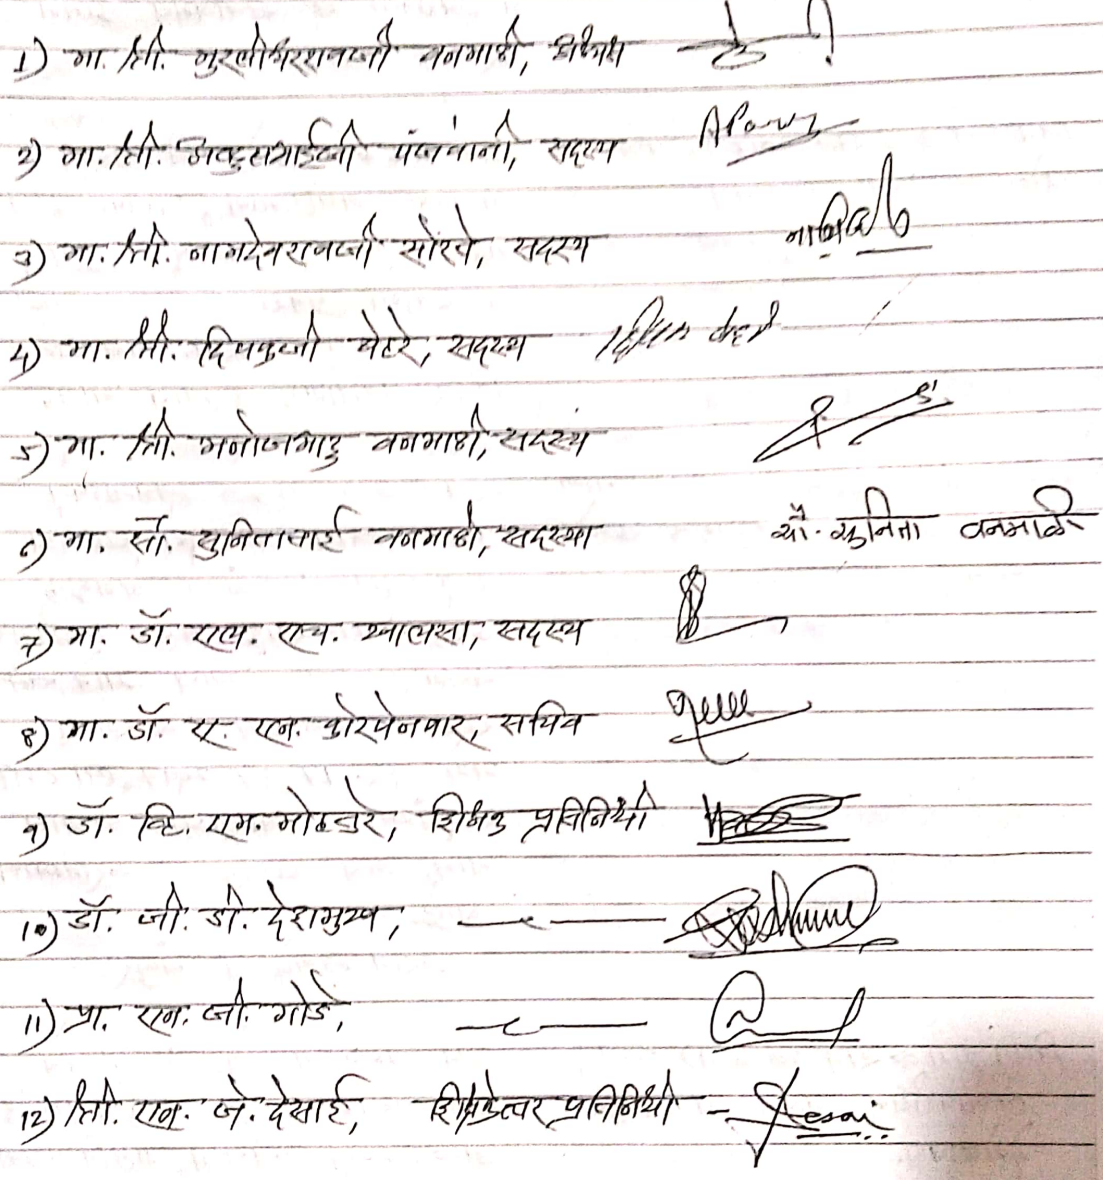 1) मा. श्री. मुरलीधररावजी वनमाळी,
2) मा. श्री. पंजवानी, सदस्य
3) मा. श्री. नामदेवरावजी सोरते, सदस्य
4) मा. श्री. दिपकजी बेहरे, सदस्य
5) मा. श्री. मनोजभाऊ वनमाळी, सदस्य
6) मा. सौ. सुनिताताई वनमाळी, सदस्या सौ. सुनिता वनमाळी
7) मा. डॉ. एल. एच. खालसा, सदस्य
8) मा. डॉ. ए. एन. सचिव
9) डॉ. व्हि. एम. शिक्षक प्रतिनिधी
10) डॉ. जी. डी. देशमुख, —〃—
11) प्रा. एन. जी. गोडे, —〃—
12) श्री. एन. जे. देसाई, शिक्षकेत्तर प्रतिनिधी - Desai